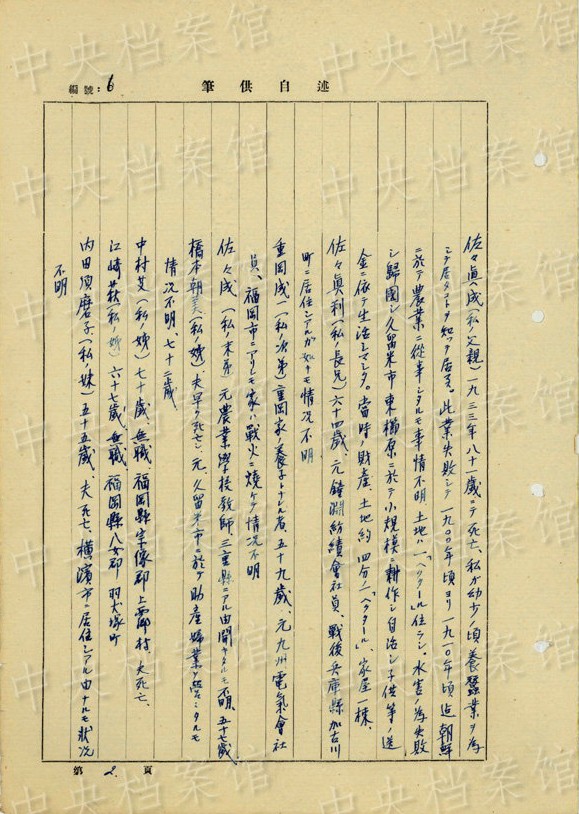 述自供筆
編號：6
佐々眞成（私ノ父親）一九三三年八十一歲ニテ死亡、私ガ幼少ノ頃養蠶業ヲ為
シテ居タコトヲ知ツテ居ル。此業失敗シテ一九〇〇年頃ヨリ一九一〇年頃迄朝鮮
ニ於テ農業ニ從事シタルモ事情不明 土地ハ一「ヘクタール」位ラシ、水害ノ為失敗
シ歸國シ久留米市東櫛原ニ於テ小規模ニ耕作シ自治シ子供等ノ送
金ニ依テ生活シマシタ。當時ノ財產、土地約四分ノ一「ヘクタール」、家屋一棟、
佐々眞利（私ノ長兄）六十四歲、元鐘淵紡績會社員、戰後兵庫縣加古川
町ニ居住シアルガ如キモ情況不明
重岡成（私ノ次弟）重岡家ノ養子トナレル者、五十九歲、元九州電氣會社
員、福岡市ニアリシモ家ハ戰火ニ燒ケテ情況不明
佐々成（私ノ末弟）元農業學校敎師、三重縣ニアル由聞キタルモ不明、五十七歲、
橋本朝美（私ノ姉）夫早ク死亡、元、久留米市ニ於テ助產婦業ヲ營ミタルモ
情況不明、七十二歲、
中村艾（私ノ姉）七十歲、無職、福岡縣宗像郡上西鄉村、夫死亡、
江崎萩（私ノ姉）六十七歲、無職、福岡縣八女郡羽犬塚町
內田須磨子（私ノ妹）五十五歲、夫死亡、橫濱市ニ居住シアル由ナルモ狀況
不明
第 2 頁
中央档案馆